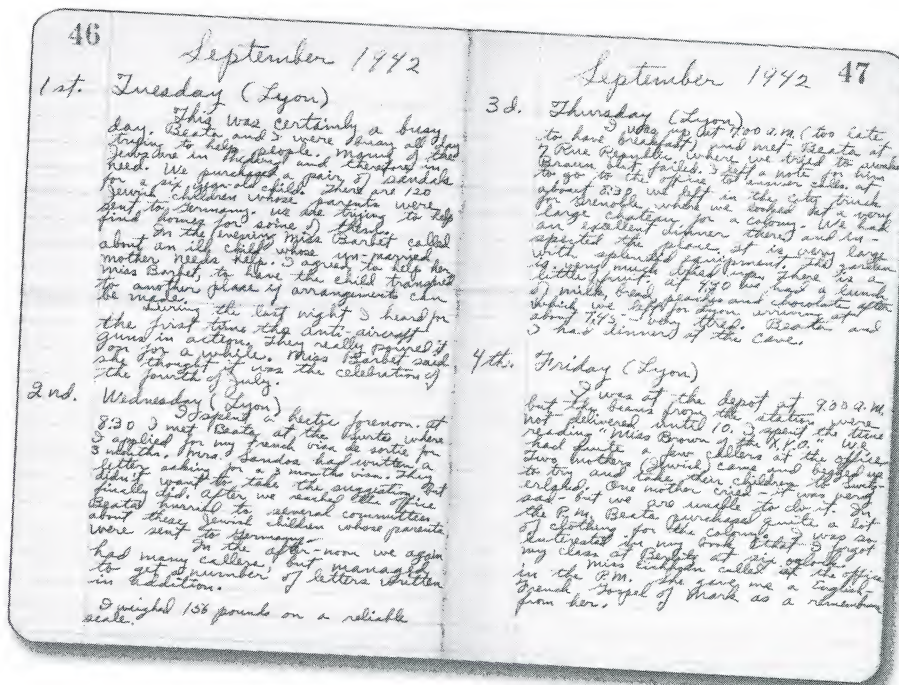 46
September 1942
1st. Tuesday (Lyon)
This was certainly a busy
day. Beata and I were busy all day
trying to help people. Many of the
Jews are in hiding and therefore in
need. We purchased a pair of sandals
for a six year-old child. There are 120
Jewish children whose parents were
sent to Germany. We are trying to help
find homes for some of them.
In the evening Miss Barbet called
about an ill child whose un-married
mother needs help. I agreed to help her
Miss Barbet, to have the child transferred
to another place if arrangements can
be made.
During the last night I heard for
the first time the anti-aircraft
guns in action. They really poured it
on for a while. Miss Barbet said
she thought it was the celebration of
the fourth of July.
2nd. Wednesday (Lyon)
I spent a hectic forenoon. At
8:30 I met Beata at the where
I applied for my French visa de sortie for
3 months. Mrs. Landos had written a
letter asking for a 3 month visa. They
didn't want to take the but
finally did. After we reached the office
Beata hurried to several committees
about these Jewish children whose parents
were sent to Germany.
In the after-noon we again
had many callers, but managed
to get a number of letters written
in addition.
I weighed 156 pounds on a reliable
scale.
September 1942 47
3d. Thursday (Lyon)
I was up at 7:00 a.m. (too late
to have breakfast) and met Beata at
7 Rue Republic where we tried to awake
Braun but failed. I left a note for him
to go to the office to answer calls. At
about 8:30 we left in the city truck
for Grenoble where we looked at a very
large chateau for a colony. We had
an excellent dinner there and in-
spected the place. It is very large
with splendid equipment. The garden
is very much dried up. There is a
little fruit. At 4:30 we had a lunch
of milk, bread, peaches and chocolate after
which we left for Lyon arriving at
about 7:45 - very tired. Beata and
I had dinner at the cave.
4th. Friday (Lyon)
I was at the depot at 9:00 a.m.
but the beans from the station were
not delivered until 10. I spent the time
reading "Miss Brown of the X.Y.O." We
had quite a few callers at the office.
Two mothers (Jewish) came and begged us
to try and take their children to Switz-
erland. One mother cried - it was very
sad - but we are unable to do it. In
the P.M. Beata purchased quite a lot
of clothing for the colony. I was so
interested in my work that I forgot
my class at Berlitz at six oclock.
Miss called at the office
in the P.M. She gave me a English-
French Gospel of Mark as a remembran
from her.